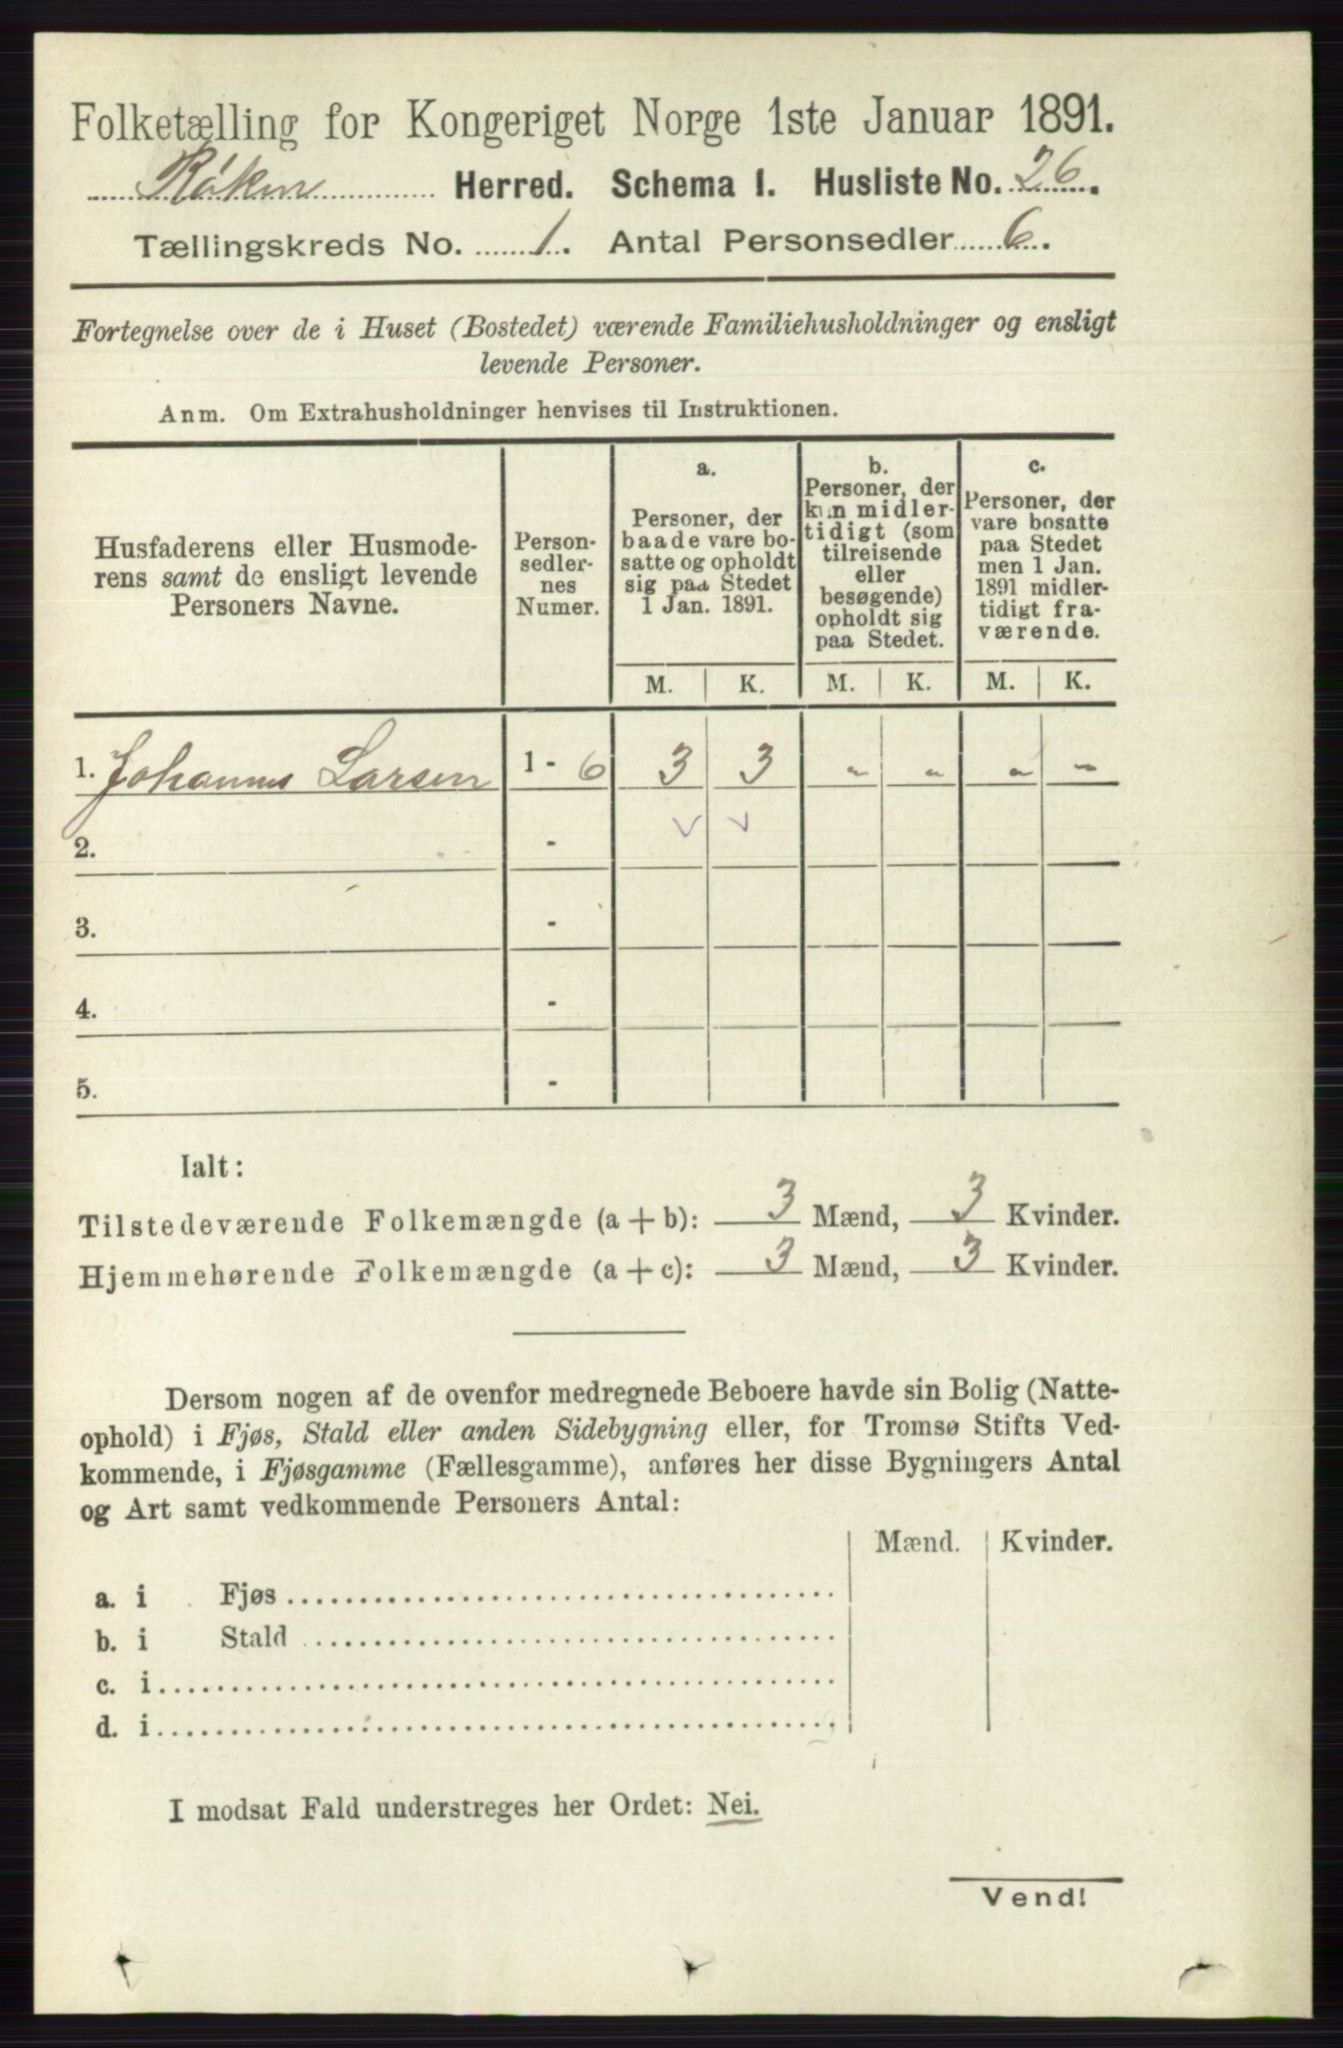 Folketælling for Kongeriget Norge 1ste Januar 1891.
Røken Herred. Schema I. Husliste No. 26.
Tællingskreds No. 1. Antal Personsedler 6.
Fortegnelse over de i Huset (Bostedet) værende Familiehusholdninger og ensligt
levende Personer.
Anm. Om Extrahusholdninger henvises til Instruktionen.
Husfaderens eller Husmode-
rens samt de ensligt levende
Personers Navne.
Person-
sedler-
nes
Numer.
a.
Personer, der
baade vare bo-
satte og opholdt
sig paa Stedet
1 Jan. 1891.
b.
Personer, der
kun midler-
tidigt (som
tilreisende
eller
besøgende)
opholdt sig
paa Stedet.
c.
Personer, der
vare bosatte
paa Stedet
men 1 Jan.
1891 midler-
tidigt fra-
værende.
M. K. M. K. M. K.
1. Johannes Larsen 1 - 6 3 3 - - - -
2. -
3. -
4. -
5. -
Ialt:
Tilstedeværende Folkemængde (a + b): 3 Mænd, 3 Kvinder.
Hjemmehørende Folkemængde (a + c): 3 Mænd, 3 Kvinder.
Dersom nogen af de ovenfor medregnede Beboere havde sin Bolig (Natte-
ophold) i Fjøs, Stald eller anden Sidebygning eller, for Tromsø Stifts Ved-
kommende, i Fjøsgamme (Fællesgamme), anføres her disse Bygningers Antal
og Art samt vedkommende Personers Antal:
Mænd. Kvinder.
a. i Fjøs
b. i Stald
c. i
d. i
I modsat Fald understreges her Ordet: Nei.
Vend!